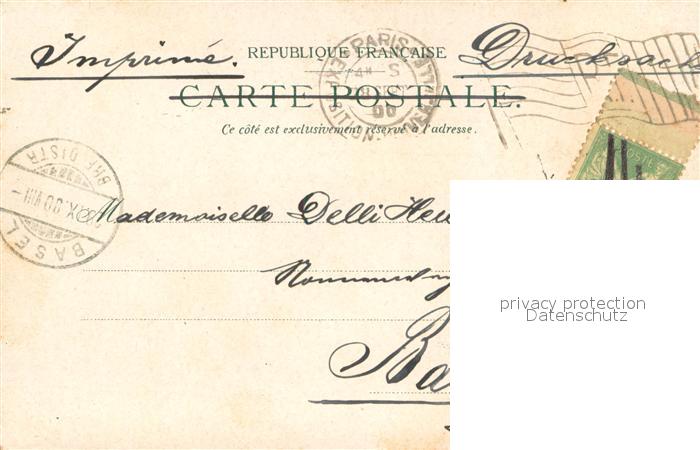 Imprimé. REPUBLIQUE FRANÇAISE Drucksach
CARTE POSTALE.
Ce côté est exclusivement réservé à l'adresse.
PARIS
EXPOSITION
00
POSTE
BASEL
BRF. DISTR.
X.00.VIII-
Mademoiselle Delli
Ba
privacy protection
Datenschutz